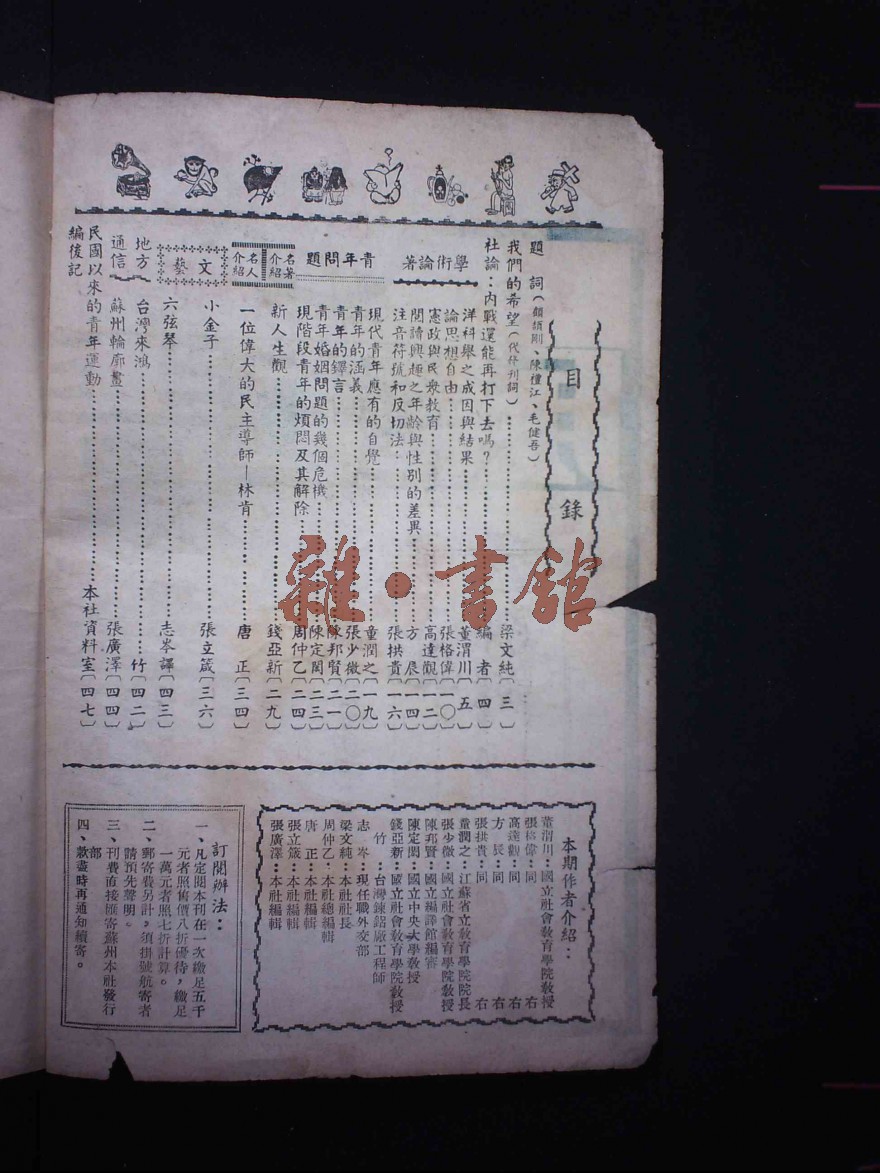 目錄
題詞（顧頡剛、陳禮江、毛健吾）
我們的希望（代發刊詞）……梁文純〔三〕
社論：內戰還能再打下去嗎？……編者〔四〕
學術論著
洋科舉之成因與結果……童潤川〔五〕
論思想自由……張格偉〔一〇〕
憲政與民衆教育……高達觀〔一二〕
閱讀興趣之年齡與性別的差異……方辰〔一四〕
注音符號和反切法……張拱貴〔一六〕
青年問題
現代青年應有的自覺……童潤之〔一九〕
青年的涵義……張少微〔二〇〕
青年的鐸言……陳邦賢〔二一〕
青年婚姻問題的幾個危機……陳定閎〔二三〕
現階段青年的煩悶及其解除……周仲乙〔二四〕
名著介紹
新人生觀……錢亞新〔二九〕
名人介紹
一位偉大的民主導師—林肯……唐正〔三四〕
文藝
小金子……張立箴〔三六〕
六弦琴……志岑譯〔四三〕
地方通信
台灣來鴻……竹〔四二〕
蘇州輪廓畫……張廣澤〔四四〕
民國以來的青年運動……本社資料室〔四七〕
編後記
雜·書館
本期作者介紹：
董渭川：國立社會教育學院教授
張格偉：同右
高達觀：同右
方辰：同右
張拱貴：同右
童潤之：江蘇省立教育學院院長
張少微：國立社會教育學院教授
陳邦賢：國立編譯館編審
陳定閎：國立中央大學教授
錢亞新：國立社會教育學院教授
竹：台灣鍊鋁廠工程師
志岑：現任職外交部
梁文純：本社社長
周仲乙：本社總編輯
唐正：本社編輯
張立箴：本社編輯
張廣澤：本社編輯
訂閱辦法：
一、凡定閱本刊在一次繳足五千
元者照售價八折優待，繳足
一萬元者照七折計算。
二、郵寄費另計，須掛號航寄者
請預先聲明。
三、刊費直接匯寄蘇州本社發行
部
四、款盡時再通知續寄。